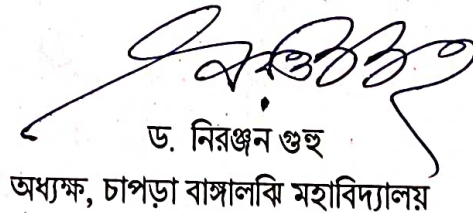 ড. নিরঞ্জন গুহু
অধ্যক্ষ, চাপড়া বাঙ্গালঝি মহাবিদ্যালয়